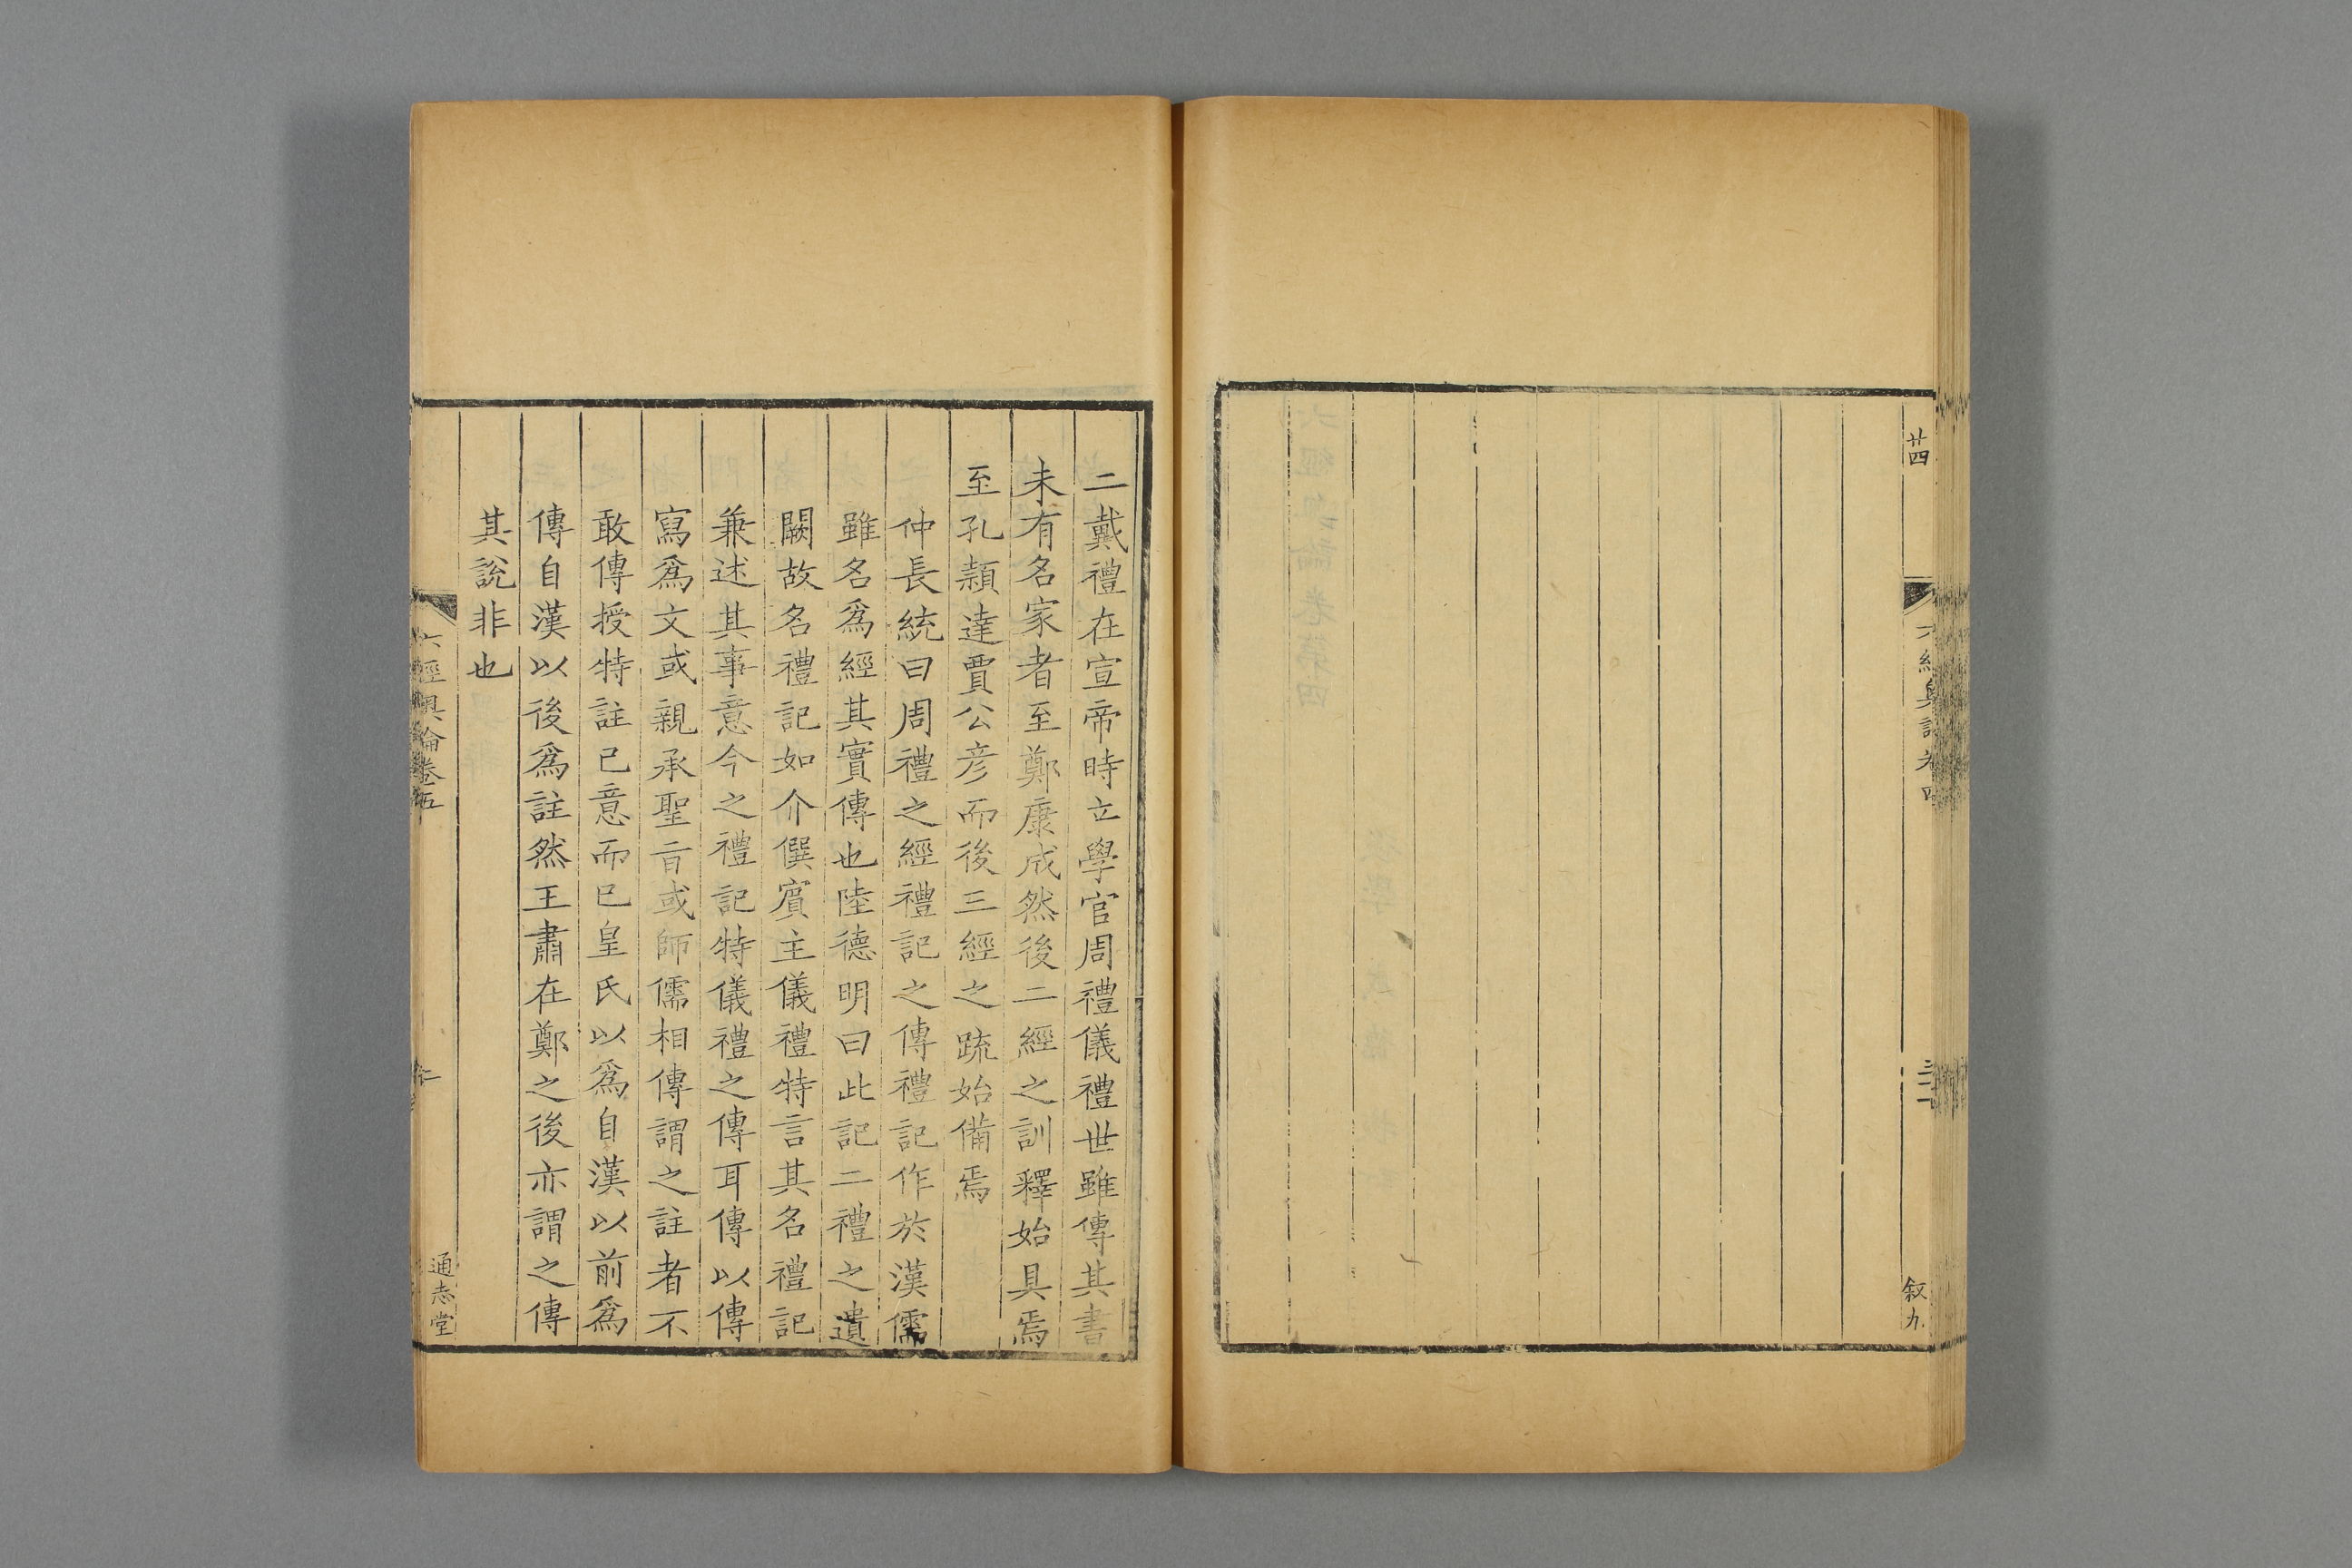 廿四
六經奥論卷四
三十一
叙九
二戴禮在宣帝時立學官周禮儀禮世雖傳其書
未有名家者至鄭康成然後二經之訓釋始具焉
至孔頴達賈公彦而後三經之疏始備焉
仲長統曰周禮之經禮記之傳禮記作於漢儒
雖名爲經其實傳也陸德明曰此記二禮之遺
闕故名禮記如介僎賓主儀禮特言其名禮記
兼述其事意今之禮記特儀禮之傳耳傳以傳
寫爲文或親承聖旨或師儒相傳謂之註者不
敢傳授特註已意而已皇氏以爲自漢以前爲
傳自漢以後爲註然王肅在鄭之後亦謂之傳
其說非也
六經奥論卷五
通志堂